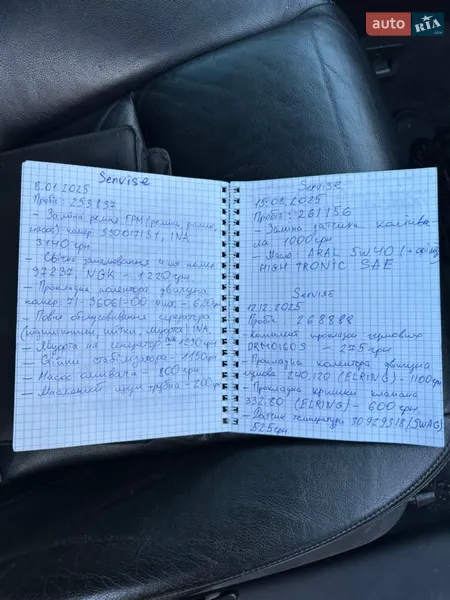 auto RIA
Servise
8.01.2025
Пробіг: 253837
- Заміна ремня ГРМ (ремінь, ролик,
насос) номер 530017151, INA
3140 грн
- Свічки запалювання 4 шт номер
97237, NGK - 1220 грн
- Прокладка колектора двигуна
номер 71-36061-00
- Повне обслуговування генератора
(підшипники, щітки, муфта) INA
- Муфта на генератор - 1290 грн
стабілізатора - 1150 грн
- Насос омивача - 800 грн
трубка - 200 грн
Servise
15.08.2025
Пробіг: 261156
- Заміна датчика колінва
ла 1000 грн
- Масло: ARAL 5w40
HIGH TRONIC SAE
Servise
12.12.2025
Пробіг 268888
комплект прокладок
DRM01609 - 275 грн
- Прокладка колектора двигуна
240.120 (ELRING) - 1100 грн
- Прокладка кришки клапана
332.80 (ELRING) - 600 грн
- Датчик температури 30929318 (SWAG)
525 грн